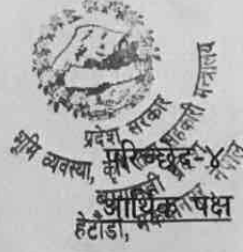 प्रदेश सरकार
भूमि व्यवस्था, कृषि तथा सहकारी मन्त्रालय
परिच्छेद-४
आर्थिक पक्ष
हेटौंडा, नेपाल